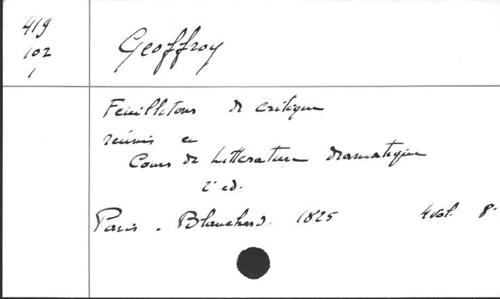 419
102
1
Geoffroy
Feuilletons de critique
réunis en
Cours de Litterature dramatique
2e ed.
Paris. Blanchard. 1825 4 vol. 8°